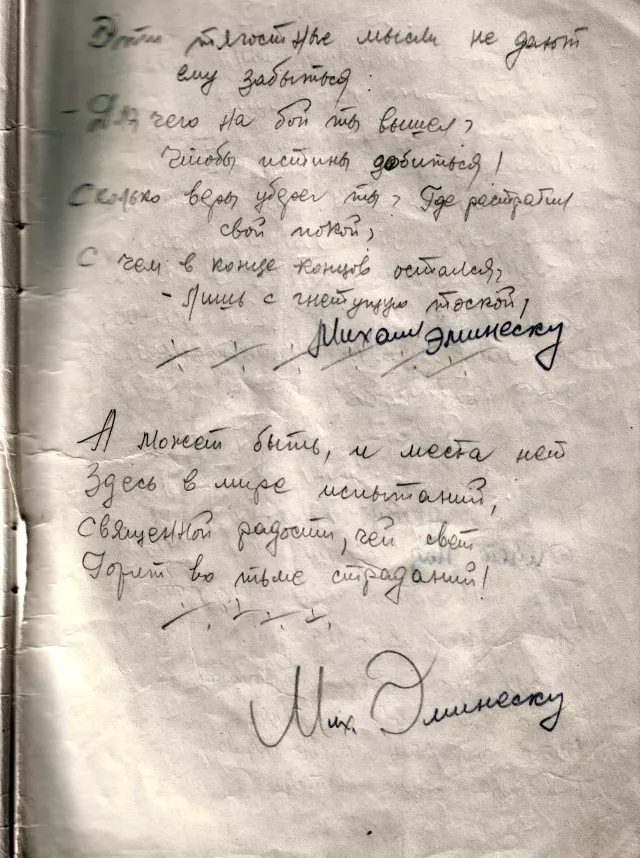 Эти тягостные мысли не дают
ему забыться
- Для чего на бой ты вышел?
Чтобы истины добиться!
Сколько веры уберег ты? Где растратил
свой покой?
С чем в конце концов остался?
- Лишь с гнетущую тоской!
Михаил Эминеску
А может быть, и места нет
Здесь в мире испытаний,
Священной радости, чей свет
Горит во тьме страданий!
Мих. Эминеску